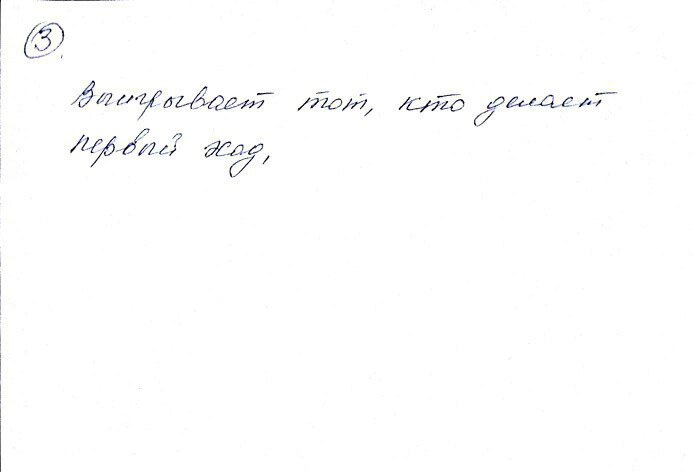 3
Выигрывает тот, кто делает
первый ход,